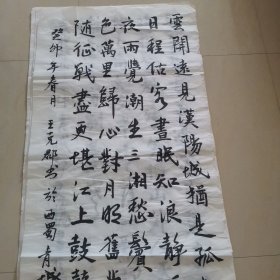 雲開遠見漢陽城猶是孤
日程估客晝眠知浪靜
夜雨覺潮生三湘愁鬢
色萬里歸心對月明舊業
随征戰盡更堪江上鼓
癸卯年春月 王元書於西蜀青城